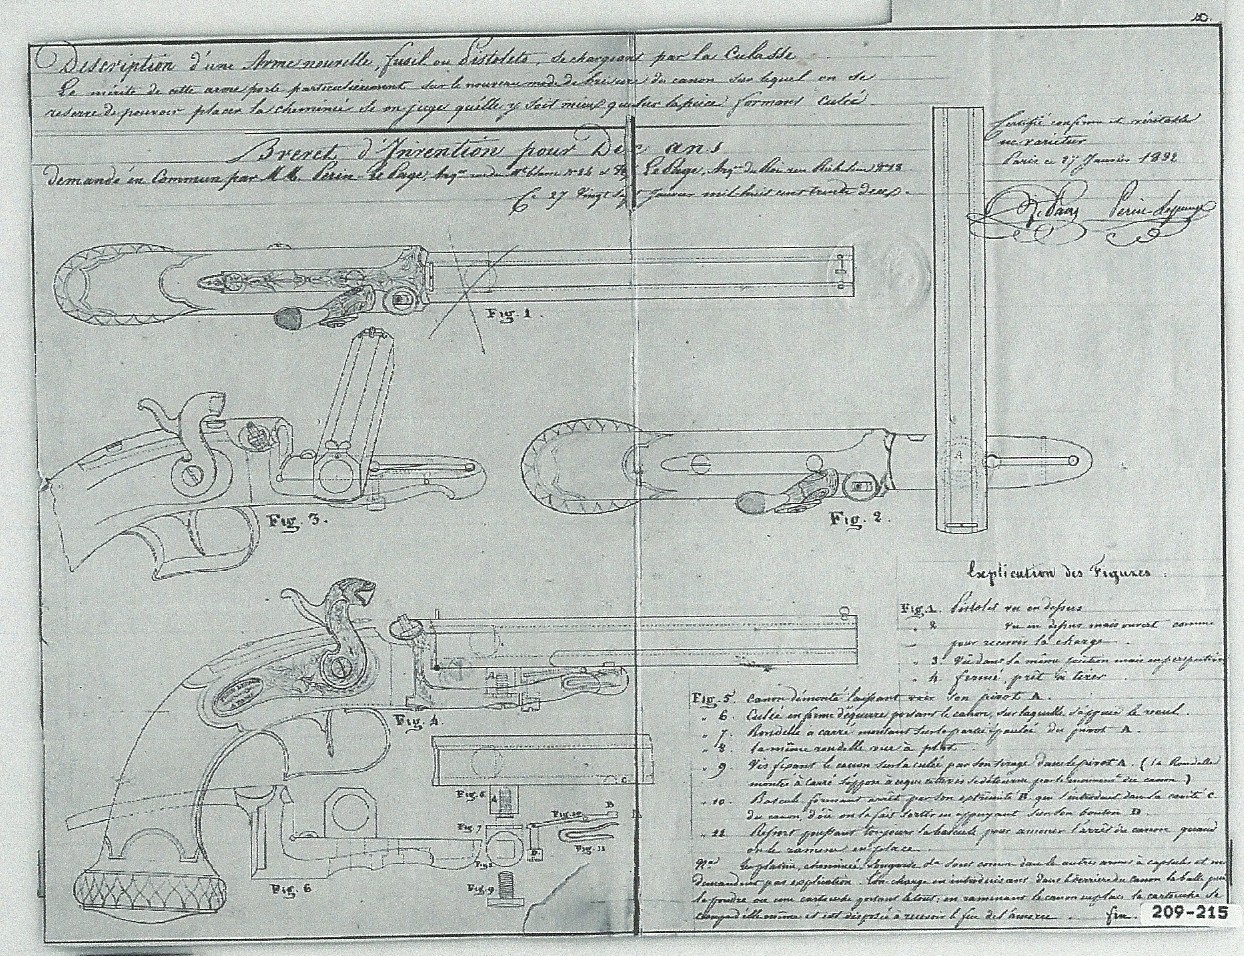 Description d'une Arme nouvelle, fusil ou Pistolets, se chargeant par la Culasse
Le mérite de cette arme porte particulièrement sur le nouveau mode de brisure du canon sur lequel on se
reserve de pouvoir placer la cheminée si on juge qu'elle y soit mieux que sur la pièce formant culée.
Brevet d'Invention pour Dix ans
demandé en Commun par MM. Perin-Le Page, Arq. rue N° 24 et Le Page, Arq. du Roi rue Richelieu N° 13
Ce 27 Vingt Sept Janvier mil huit cent trente deux.
Certifié conforme et véritable
ne varietur
Paris ce 27 Janvier 1832
Le Page Perin-Lepage
Fig. 1.
Fig. 3.
A
Fig. 2.
Fig. 4
Explication des Figures.
Fig. 1. Pistolet vu en dessus
" 2 vu en dessus mais ouvert comme
pour recevoir la charge
" 3. Vu dans la même position mais en perspective
" 4 fermé, prêt à tirer
Fig. 5 Canon démonté laissant voir son pivot A.
" 6. Culée en forme d'équerre portant le canon, sur laquelle s'appuie le recul.
" 7 Rondelle a carré montant sur la partie du pivot A.
" 8 la même rondelle vue à plat
" 9 Vis fixant le canon sur la culée par son forage dans le pivot A. (la Rondelle
montée à carré s'oppose à ce que cette vis se détourne par le mouvemt. du canon)
" 10. Bascule formant arrêt par son extrémité B qui s'introduit dans la cavité C
du canon d'où on la fait sortir en appuyant sur son bouton D.
" 11 Ressort poussant toujours la bascule pour amener l'arrêt du canon quand
on le ramène en place.
Na les platine, cheminée, sougarde &a sont comme dans les autres armes à capsule et ne
demandent pas explication. l'on charge en introduisant dans le derrière du canon la balle puis
la poudre ou une cartouche portant le tout; en ramenant le canon en place la cartouche se
et est disposée à recevoir le feu de l'amorce. fin.
Fig. 5
A
C
Fig. 7
Fig. 10
B
Fig. 11
D
Fig. 6
Fig. 9
209-215